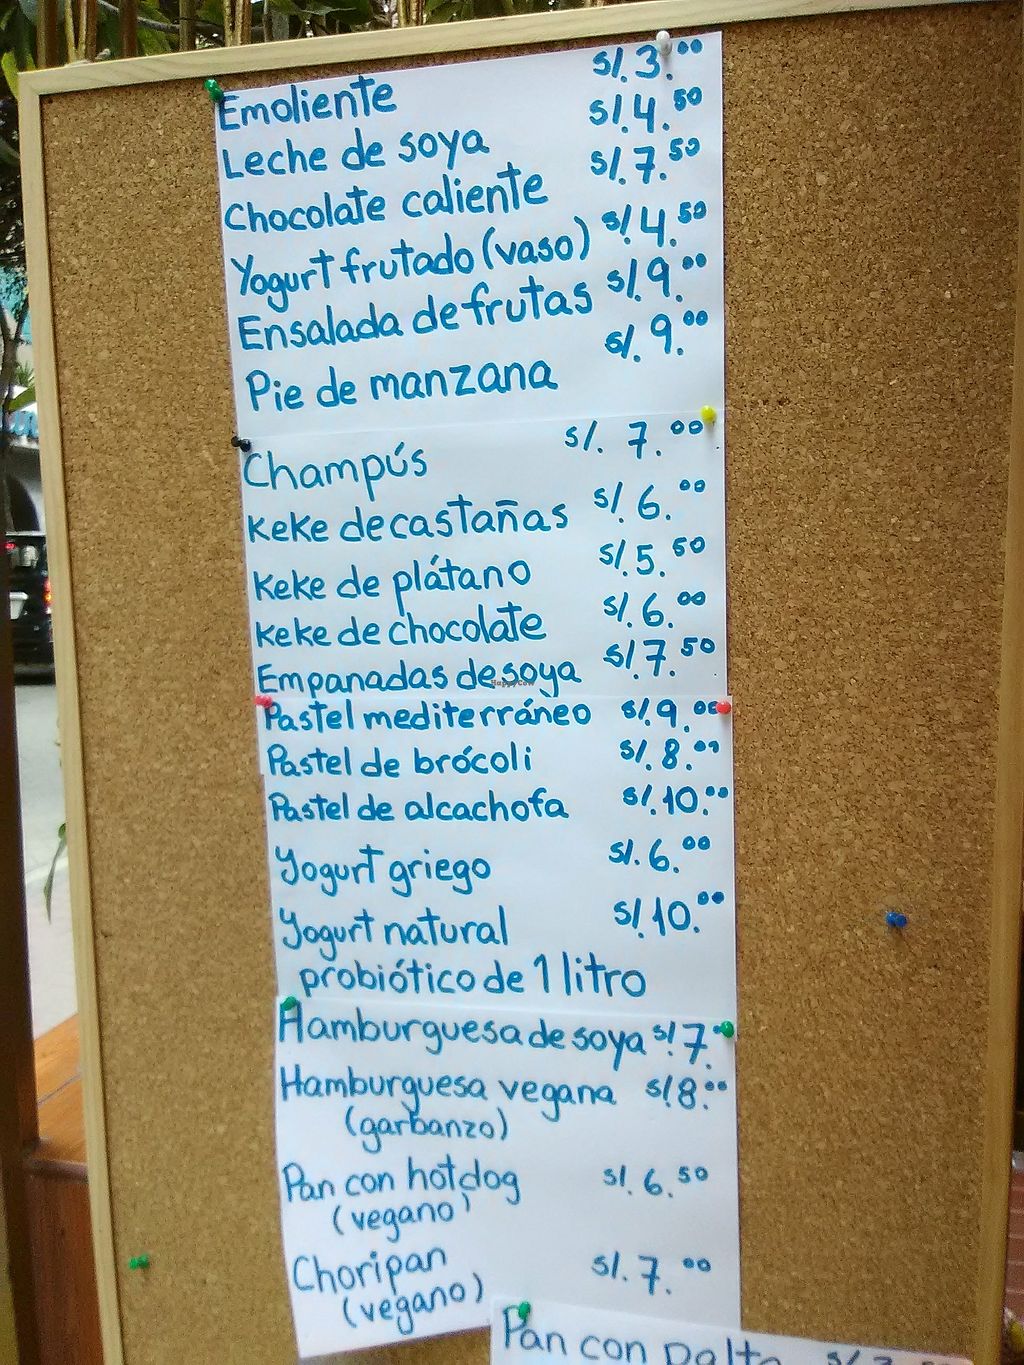 Emoliente S/. 3.00
Leche de soya S/. 4.50
Chocolate caliente S/. 7.50
Yogurt frutado (vaso) S/. 4.50
Ensalada de frutas S/. 9.00
Pie de manzana S/. 9.00
Champús S/. 7.00
Keke de castañas S/. 6.00
Keke de plátano S/. 5.50
Keke de chocolate S/. 6.00
Empanadas de soya S/. 7.50
HappyCow
Pastel mediterráneo S/. 9.00
Pastel de brócoli S/. 8.00
Pastel de alcachofa S/. 10.00
Yogurt griego S/. 6.00
Yogurt natural S/. 10.00
probiótico de 1 litro
Hamburguesa de soya S/. 7.
Hamburguesa vegana S/. 8.00
(garbanzo)
Pan con hotdog S/. 6.50
(vegano)
Choripan S/. 7.00
(vegano)
Pan con palta S/.